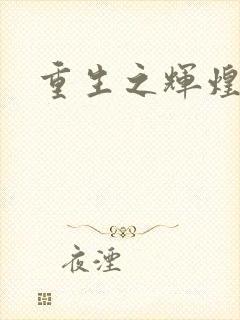 重生之辉煌
夜湮